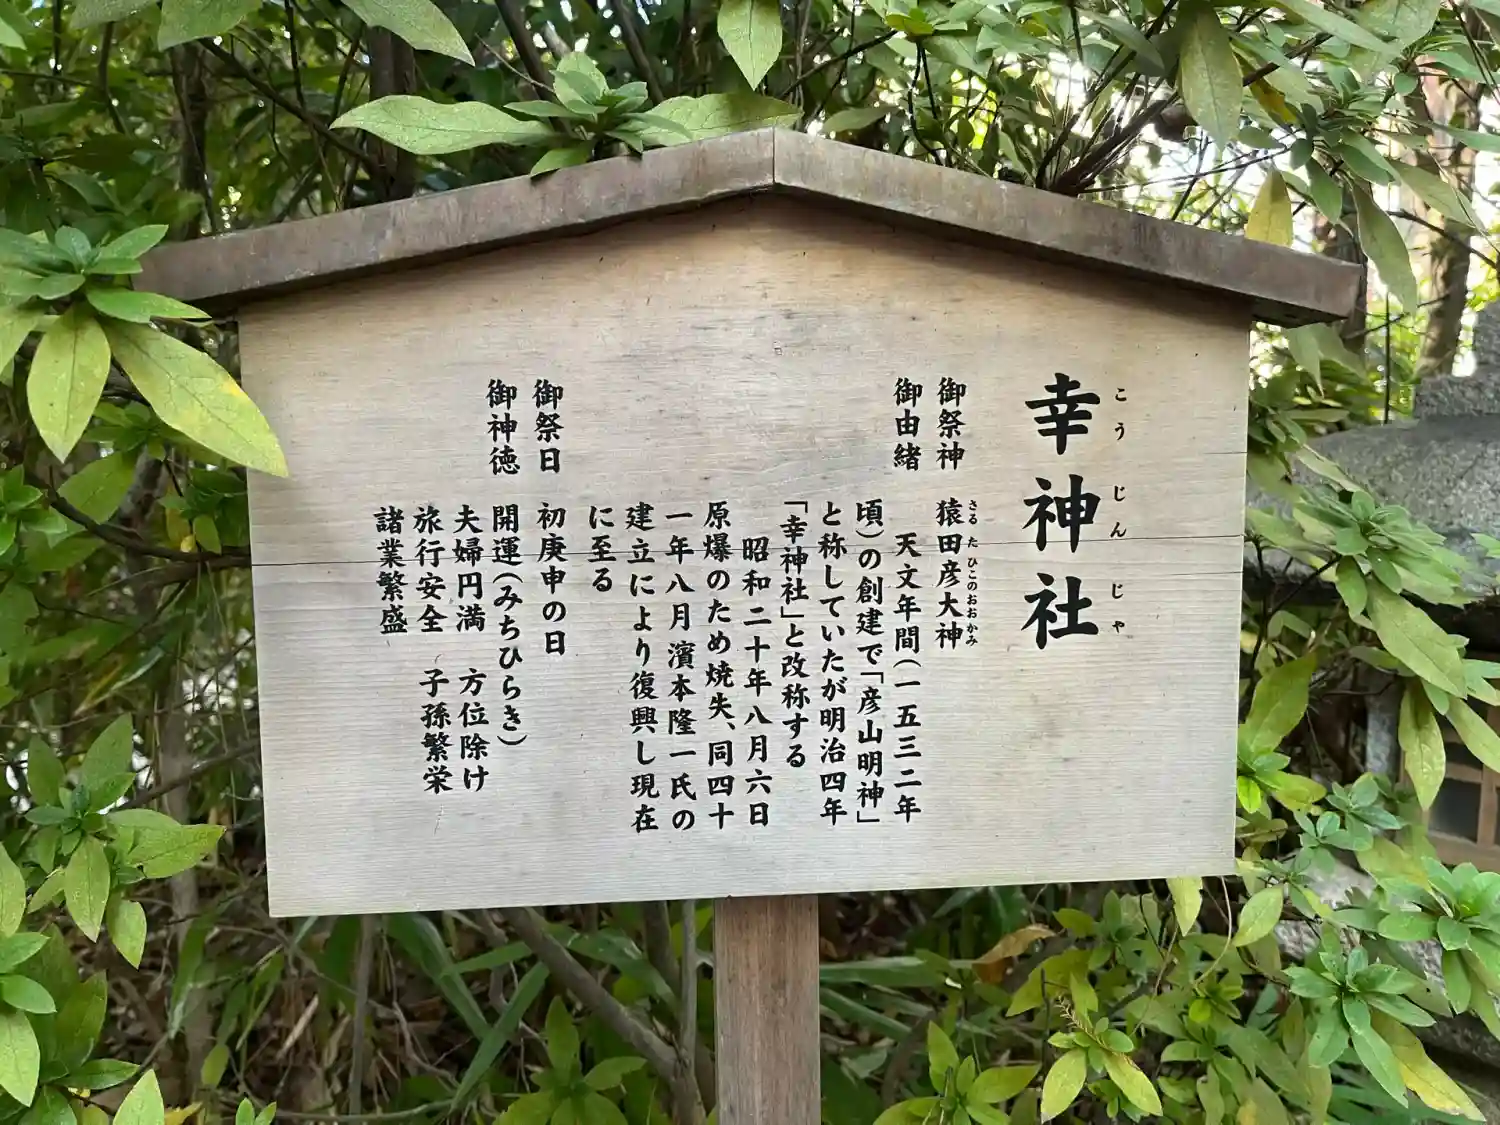 幸神社
こうじんじゃ
御祭神　猿田彦大神
さるたひこのおおかみ
御由緒　天文年間(一五三二年
頃)の創建で「彦山明神」
と称していたが明治四年
「幸神社」と改称する
昭和二十年八月六日
原爆のため焼失、同四十
一年八月濱本隆一氏の
建立により復興し現在
に至る
御祭日　初庚申の日
御神徳　開運(みちひらき)
夫婦円満　方位除け
旅行安全　子孫繁栄
諸業繁盛